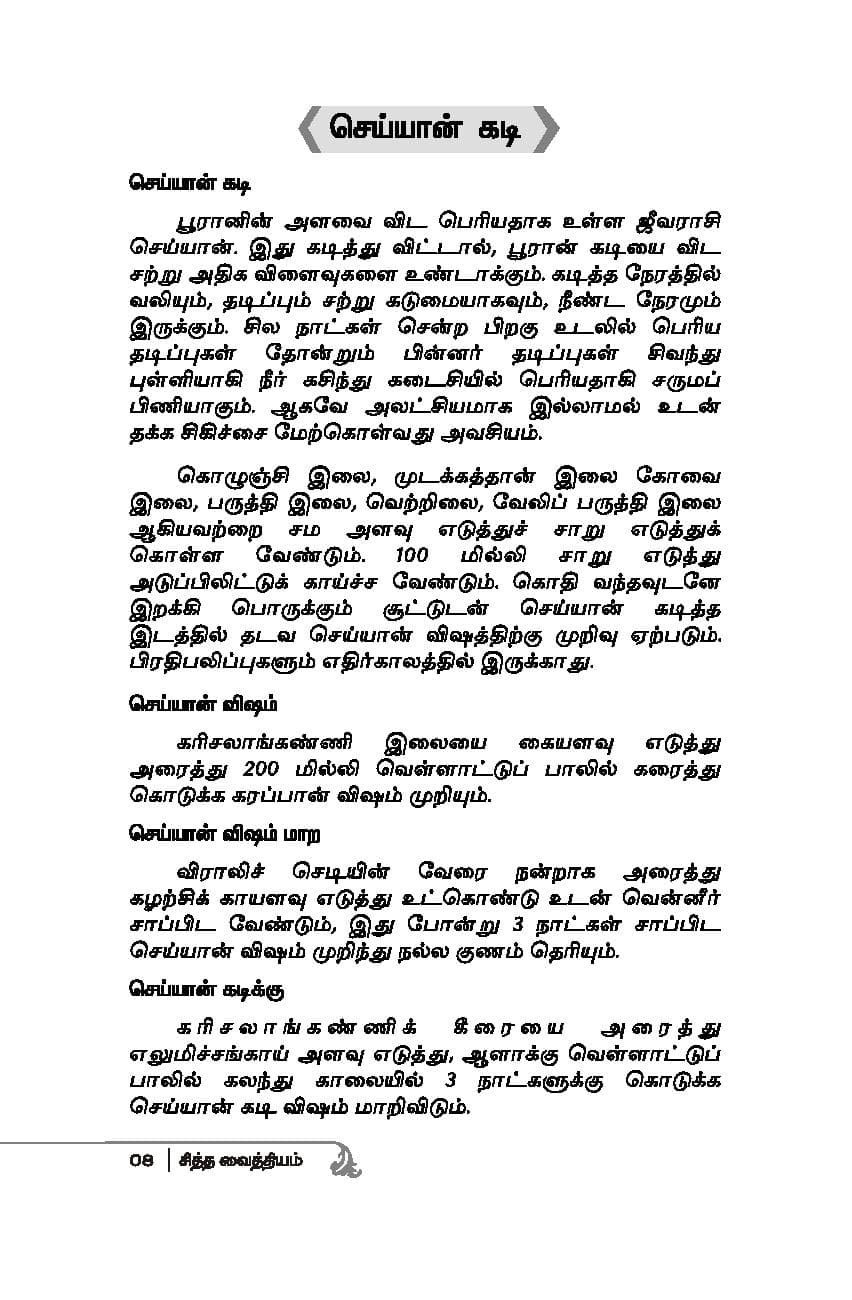 செய்யான் கடி
செய்யான் கடி
பூரானின் அளவை விட பெரியதாக உள்ள ஜீவராசி
செய்யான். இது கடித்து விட்டால், பூரான் கடியை விட
சற்று அதிக விளைவுகளை உண்டாக்கும். கடித்த நேரத்தில்
வலியும், தடிப்பும் சற்று கடுமையாகவும், நீண்ட நேரமும்
இருக்கும். சில நாட்கள் சென்ற பிறகு உடலில் பெரிய
தடிப்புகள் தோன்றும் பின்னர் தடிப்புகள் சிவந்து
புள்ளியாகி நீர் கசிந்து கடைசியில் பெரியதாகி சருமப்
பிணியாகும். ஆகவே அலட்சியமாக இல்லாமல் உடன்
தக்க சிகிச்சை மேற்கொள்வது அவசியம்.
கொழுஞ்சி இலை, முடக்கத்தான் இலை கோவை
இலை, பருத்தி இலை, வெற்றிலை, வேலிப் பருத்தி இலை
ஆகியவற்றை சம அளவு எடுத்துச் சாறு எடுத்துக்
கொள்ள வேண்டும். 100 மில்லி சாறு எடுத்து
அடுப்பிலிட்டுக் காய்ச்ச வேண்டும். கொதி வந்தவுடனே
இறக்கி பொருக்கும் சூட்டுடன் செய்யான் கடித்த
இடத்தில் தடவ செய்யான் விஷத்திற்கு முறிவு ஏற்படும்.
பிரதிபலிப்புகளும் எதிர்காலத்தில் இருக்காது.
செய்யான் விஷம்
கரிசலாங்கண்ணி இலையை கையளவு எடுத்து
அரைத்து 200 மில்லி வெள்ளாட்டுப் பாலில் கரைத்து
கொடுக்க கரப்பான் விஷம் முறியும்.
செய்யான் விஷம் மாற
விராலிச் செடியின் வேரை நன்றாக அரைத்து
கழற்சிக் காயளவு எடுத்து உட்கொண்டு உடன் வென்னீர்
சாப்பிட வேண்டும், இது போன்று 3 நாட்கள் சாப்பிட
செய்யான் விஷம் முறிந்து நல்ல குணம் தெரியும்.
செய்யான் கடிக்கு
கரிசலாங்கண்ணிக் கீரையை அரைத்து
எலுமிச்சங்காய் அளவு எடுத்து, ஆளாக்கு வெள்ளாட்டுப்
பாலில் கலந்து காலையில் 3 நாட்களுக்கு கொடுக்க
செய்யான் கடி விஷம் மாறிவிடும்.
08 | சித்த வைத்தியம்